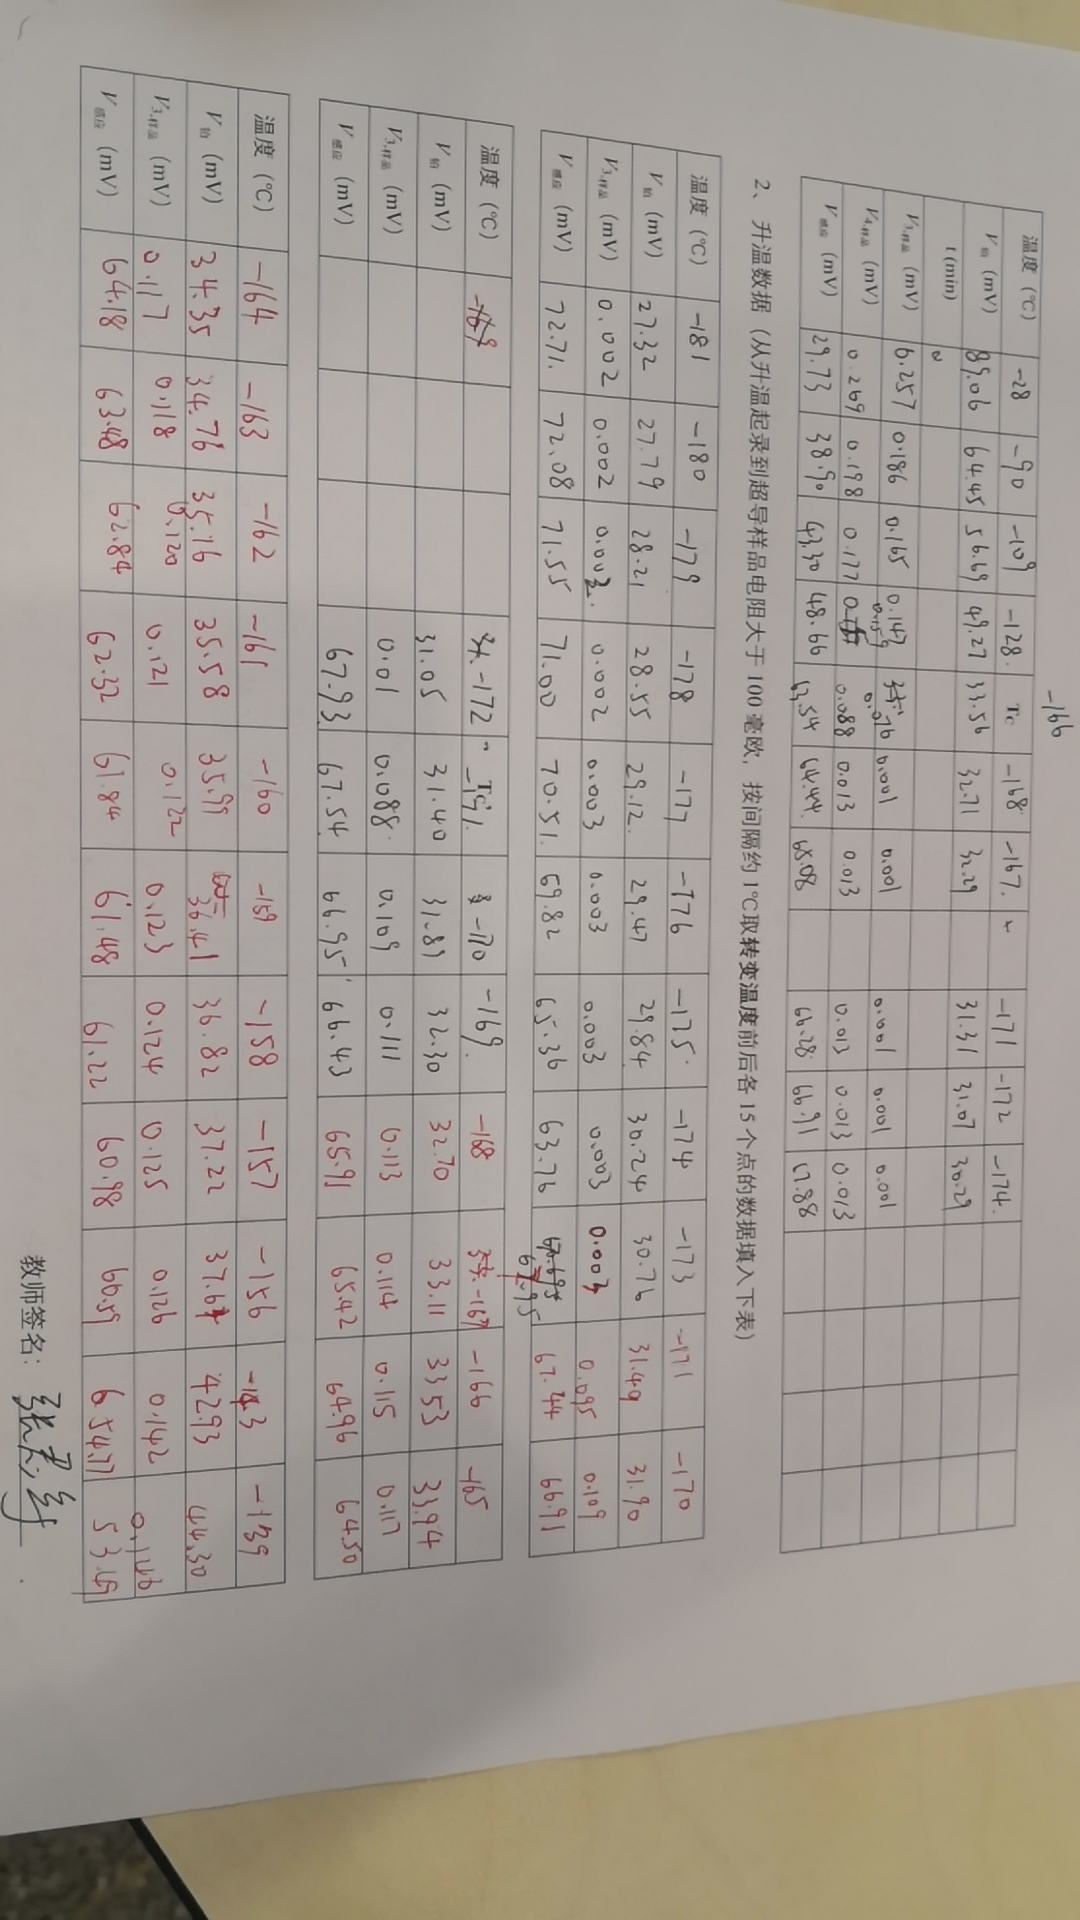 -166
温度 (℃) -28 -90 -109 -128 Tc -168 -167 -171 -172 -174
V铂 (mV) 89.06 64.45 56.69 49.27 33.56 32.71 32.29 31.31 31.07 30.29
t (min) 0
V3,样品 (mV) 0.257 0.186 0.165 0.147 0.076 0.001 0.001 0.001 0.001 0.001
V4,样品 (mV) 0.269 0.198 0.177 0.159 0.088 0.013 0.013 0.013 0.013 0.013
V感应 (mV) 29.73 38.90 43.30 48.66 63.54 64.44 65.08 66.28 66.91 67.88
2、 升温数据（从升温起录到超导样品电阻大于 100 毫欧，按间隔约 1℃取转变温度前后各 15 个点的数据填入下表）
温度 (℃) -181 -180 -179 -178 -177 -176 -175 -174 -173 -171 -170
V铂 (mV) 27.32 27.79 28.21 28.55 29.12 29.47 29.84 30.24 30.76 31.49 31.90
V3,样品 (mV) 0.002 0.002 0.002 0.002 0.003 0.003 0.003 0.003 0.003 0.095 0.109
V感应 (mV) 72.71 72.08 71.55 71.00 70.51 69.82 65.36 63.76 67.95 67.44 66.91
温度 (℃) -172 Tc -171 -170 -169 -168 -167 -166 -165
V铂 (mV) 31.05 31.40 31.81 32.30 32.70 33.11 33.53 33.94
V3,样品 (mV) 0.01 0.088 0.109 0.111 0.113 0.114 0.115 0.117
V感应 (mV) 67.93 67.54 66.95 66.43 65.91 65.42 64.96 64.50
温度 (℃) -164 -163 -162 -161 -160 -159 -158 -157 -156 -143 -139
V铂 (mV) 34.35 34.76 35.16 35.58 35.99 36.41 36.82 37.22 37.64 42.93 44.30
V3,样品 (mV) 0.117 0.118 0.120 0.121 0.122 0.123 0.124 0.125 0.126 0.142 0.146
V感应 (mV) 64.18 63.48 62.84 62.32 61.84 61.48 61.22 60.98 60.59 53.49
教师签名：